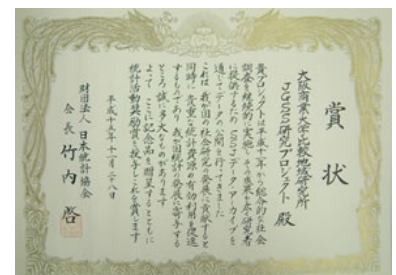 賞状
大阪商業大学比較地域研究所
JGSS研究プロジェクト 殿
貴プロジェクトは平成十一年から総合的な社会
調査を継続的に実施し その成果を広く研究者
に提供するため SSJデータ・アーカイブを
通じてデータの公開を行ってきました
これは 我が国の社会研究の発展に貢献すると
同時に 貴重な統計資源の有効利用を促進
するものであり 我が国統計の発展に寄与する
ところ誠に多大なものがあります
よって ここに記念品を贈呈するとともに
統計活動奨励賞を授与しこれを賞します
平成十五年十一月二十八日
財団法人 日本統計協会
会長 竹内 啓